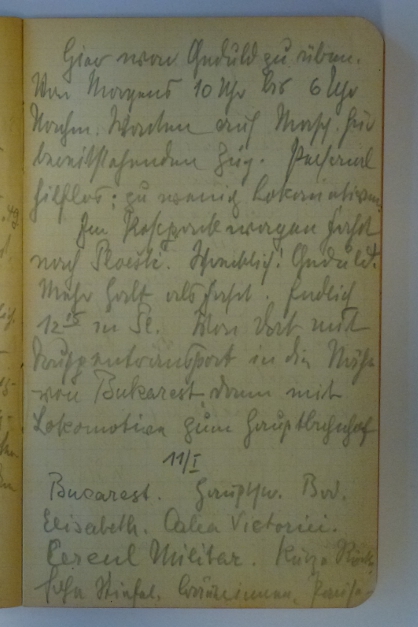 Hier war Geduld zu üben.
Von Morgens 10 Uhr bis 6 Uhr
Nachm. Warten auf Masch. für
bereitstehenden Zug. Personal
hilflos; zu wenig Lokomotiven.
Im Rotkreuzwagen Fahrt
nach Ploesti. Schrecklich! Geduld!
Mehr Halt als Fahrt. Endlich
12 15 in Pl. Von dort mit
Truppentransport in die Nähe
von Bukarest, dann mit
Lokomotive zum Hauptbahnhof
11/I
Bucarest. Hauptpw. Bvd.
Elisabeth. Calea Victoriei.
Cercul Militar. Kurze Röcke,
hohe Stiefel.